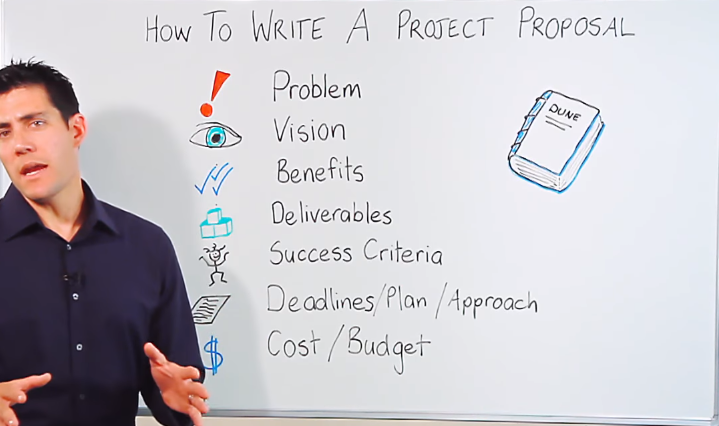 How To Write A Project Proposal
Problem
DUNE
Vision
Benefits
Deliverables
Success Criteria
Deadlines/Plan/Approach
$ Cost/Budget